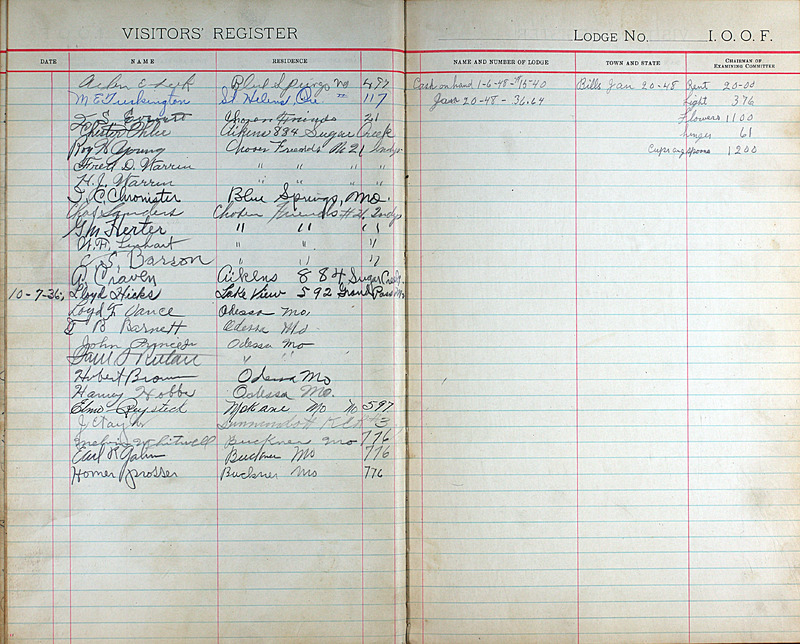 VISITORS' REGISTER
DATE NAME RESIDENCE
Blue Springs Mo
M E Turkington St Helens, Ore " 117
T. S. Everett Chosen Friends 21
Chester Aikins 884 Sugar Creek
Roy Young Chosen Friends No 21 Indp
Fred D. Warren " " "
H. J. Warren " " "
T. C. Chronister Blue Springs, Mo.
Chas Sanders Chosen Friends # 21 Indp
G. M. Herter " " "
W. F. Linhart " " "
C. S. Barson " "
A. Craven Aikens 884 Sugar Creek
10-7-36, Lloyd Hicks Lake View 592 Grand Pass Mo
Loyd F. Vance Odessa Mo.
B Barnett Odessa Mo
John Odessa Mo
Paul " "
Hubert Brown Odessa Mo
Harvey Hobbs Odessa Mo.
Elmo Mokane Mo No 597
J E Taylor # 3
Whitwell Buckner Mo 776
Earl Buckner Mo 776
Homer Prosser Buckner Mo 776
LODGE NO. I. O. O. F.
NAME AND NUMBER OF LODGE TOWN AND STATE CHAIRMAN OF EXAMINING COMMITTEE
Cash on hand 1-6-48 - $15-40 Bills Jan 20-48 Rent 20-00
Jan 20-48 - 36.64 Light 376
Flowers 1100
61
Cups and spoons 1200